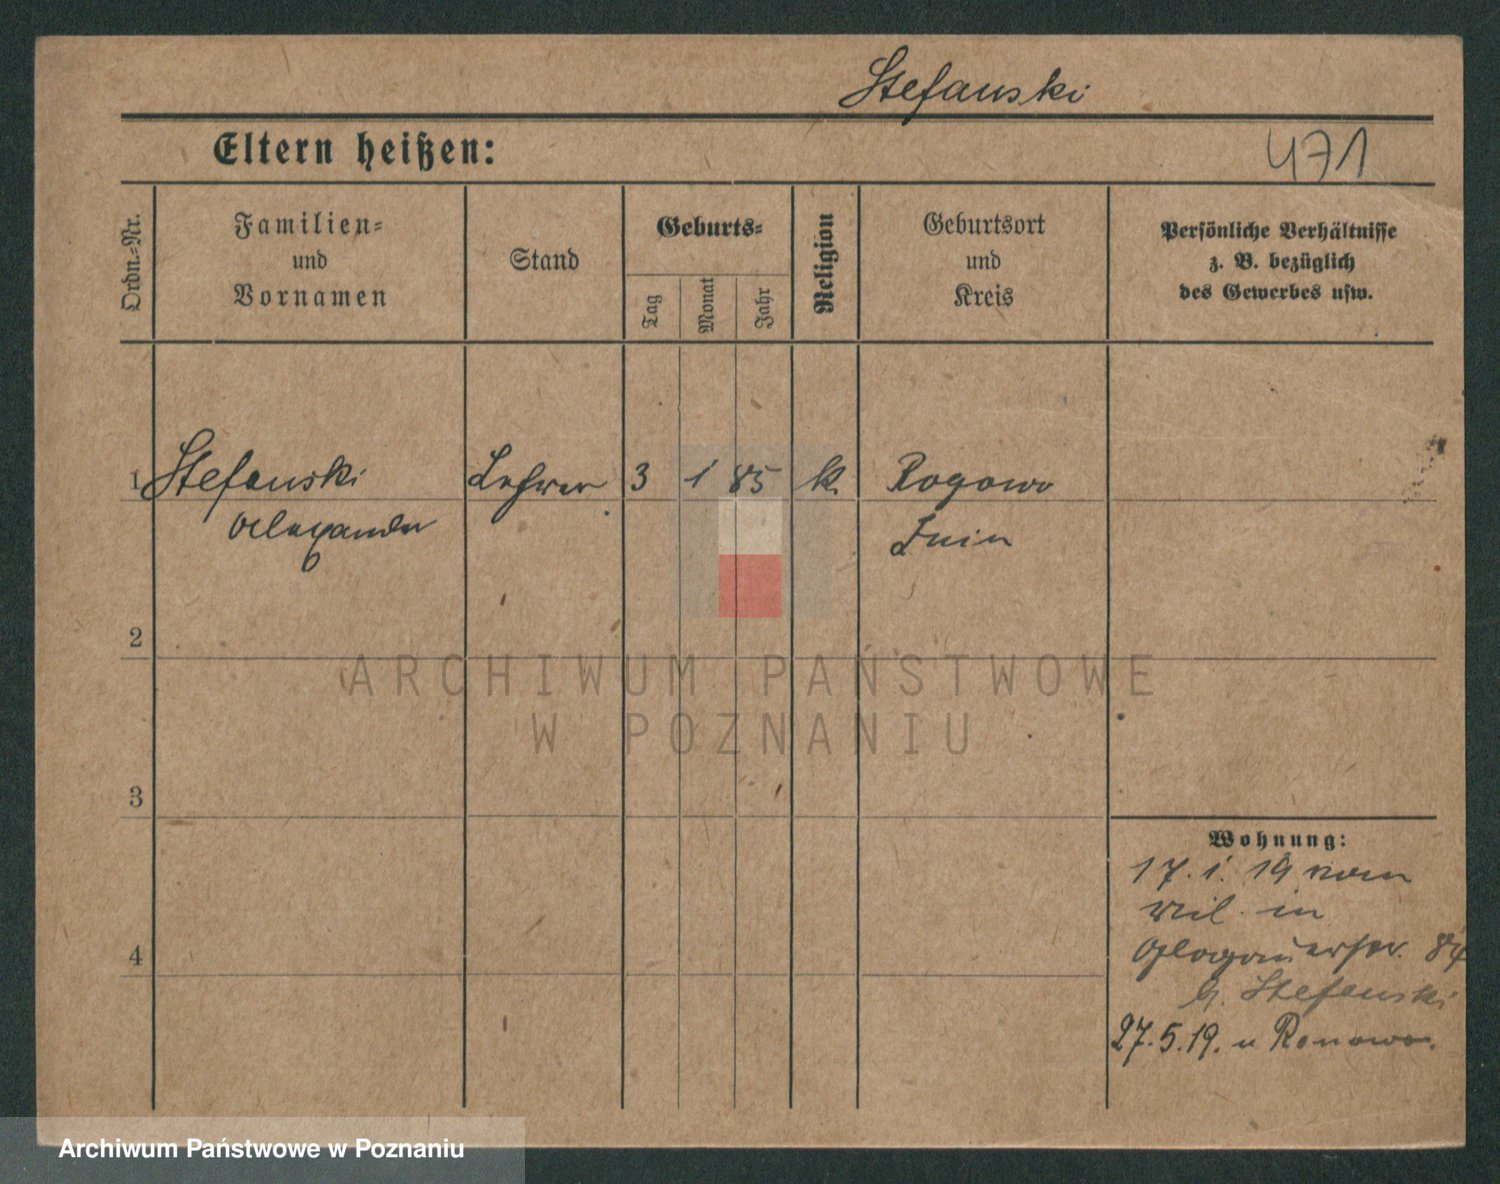 Stefanski
Eltern heißen:
471
Ordn.-Nr.
Familien-
und
Vornamen
Stand
Geburts-
Tag
Monat
Jahr
Religion
Geburtsort
und
Kreis
Persönliche Verhältnisse
z. B. bezüglich
des Gewerbes usw.
1 Stefanski Lehrer 3 1 85 k. Rogowo
Alexander Znin
2
3
4
Wohnung:
17. 1. 19 vom
Mil. in
Glogauerstr. 84
b. Stefanski
27.5.19. n Ronowo.
ARCHIWUM PAŃSTWOWE
W POZNANIU
Archiwum Państwowe w Poznaniu